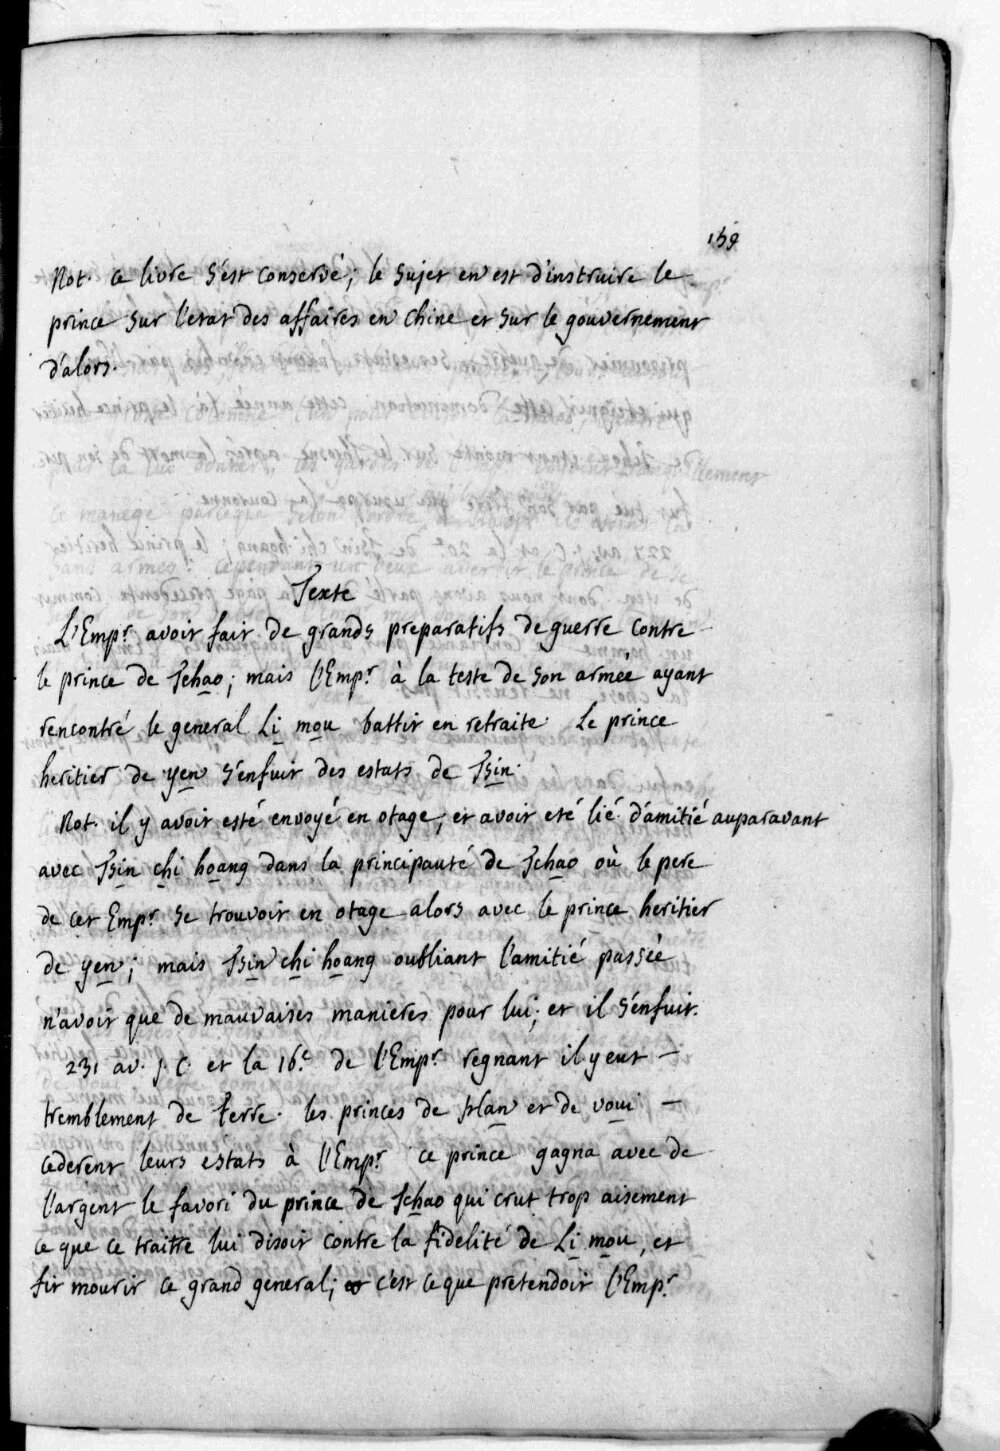 159
Not. ce livre s'est conservé; le sujet en est d'instruire le
prince sur l'etat des affaires en Chine et sur le gouvernement
d'alors.
Texte
L'Emp.r avoit fait de grands preparatifs de guerre contre
le prince de Tchao; mais l'Emp.r à la teste de son armée ayant
rencontré le general Li mou battit en retraite. Le prince
heritier de yen s'enfuit des estats de Tsin.
Not. il y avoit esté envoyé en otage, et avoit eté lié d'amitié auparavant
avec Tsin chi hoang dans la principauté de Tchao où le pere
de cet Emp.r se trouvoit en otage alors avec le prince heritier
de yen; mais Tsin chi hoang oubliant l'amitié passée
n'avoit que de mauvaises manieres pour lui; et il s'enfuit.
231 av. J. C. et la 16.e de l'Emp.r regnant il y eut
tremblement de terre. les princes de han et de voui
cederent leurs estats à l'Emp.r ce prince gagna avec de
l'argent le favori du prince de Tchao qui crut trop aisement
ce que ce traitre lui disoit contre la fidelité de Li mou, et
fit mourir ce grand general; c'est ce que pretendoit l'Emp.r